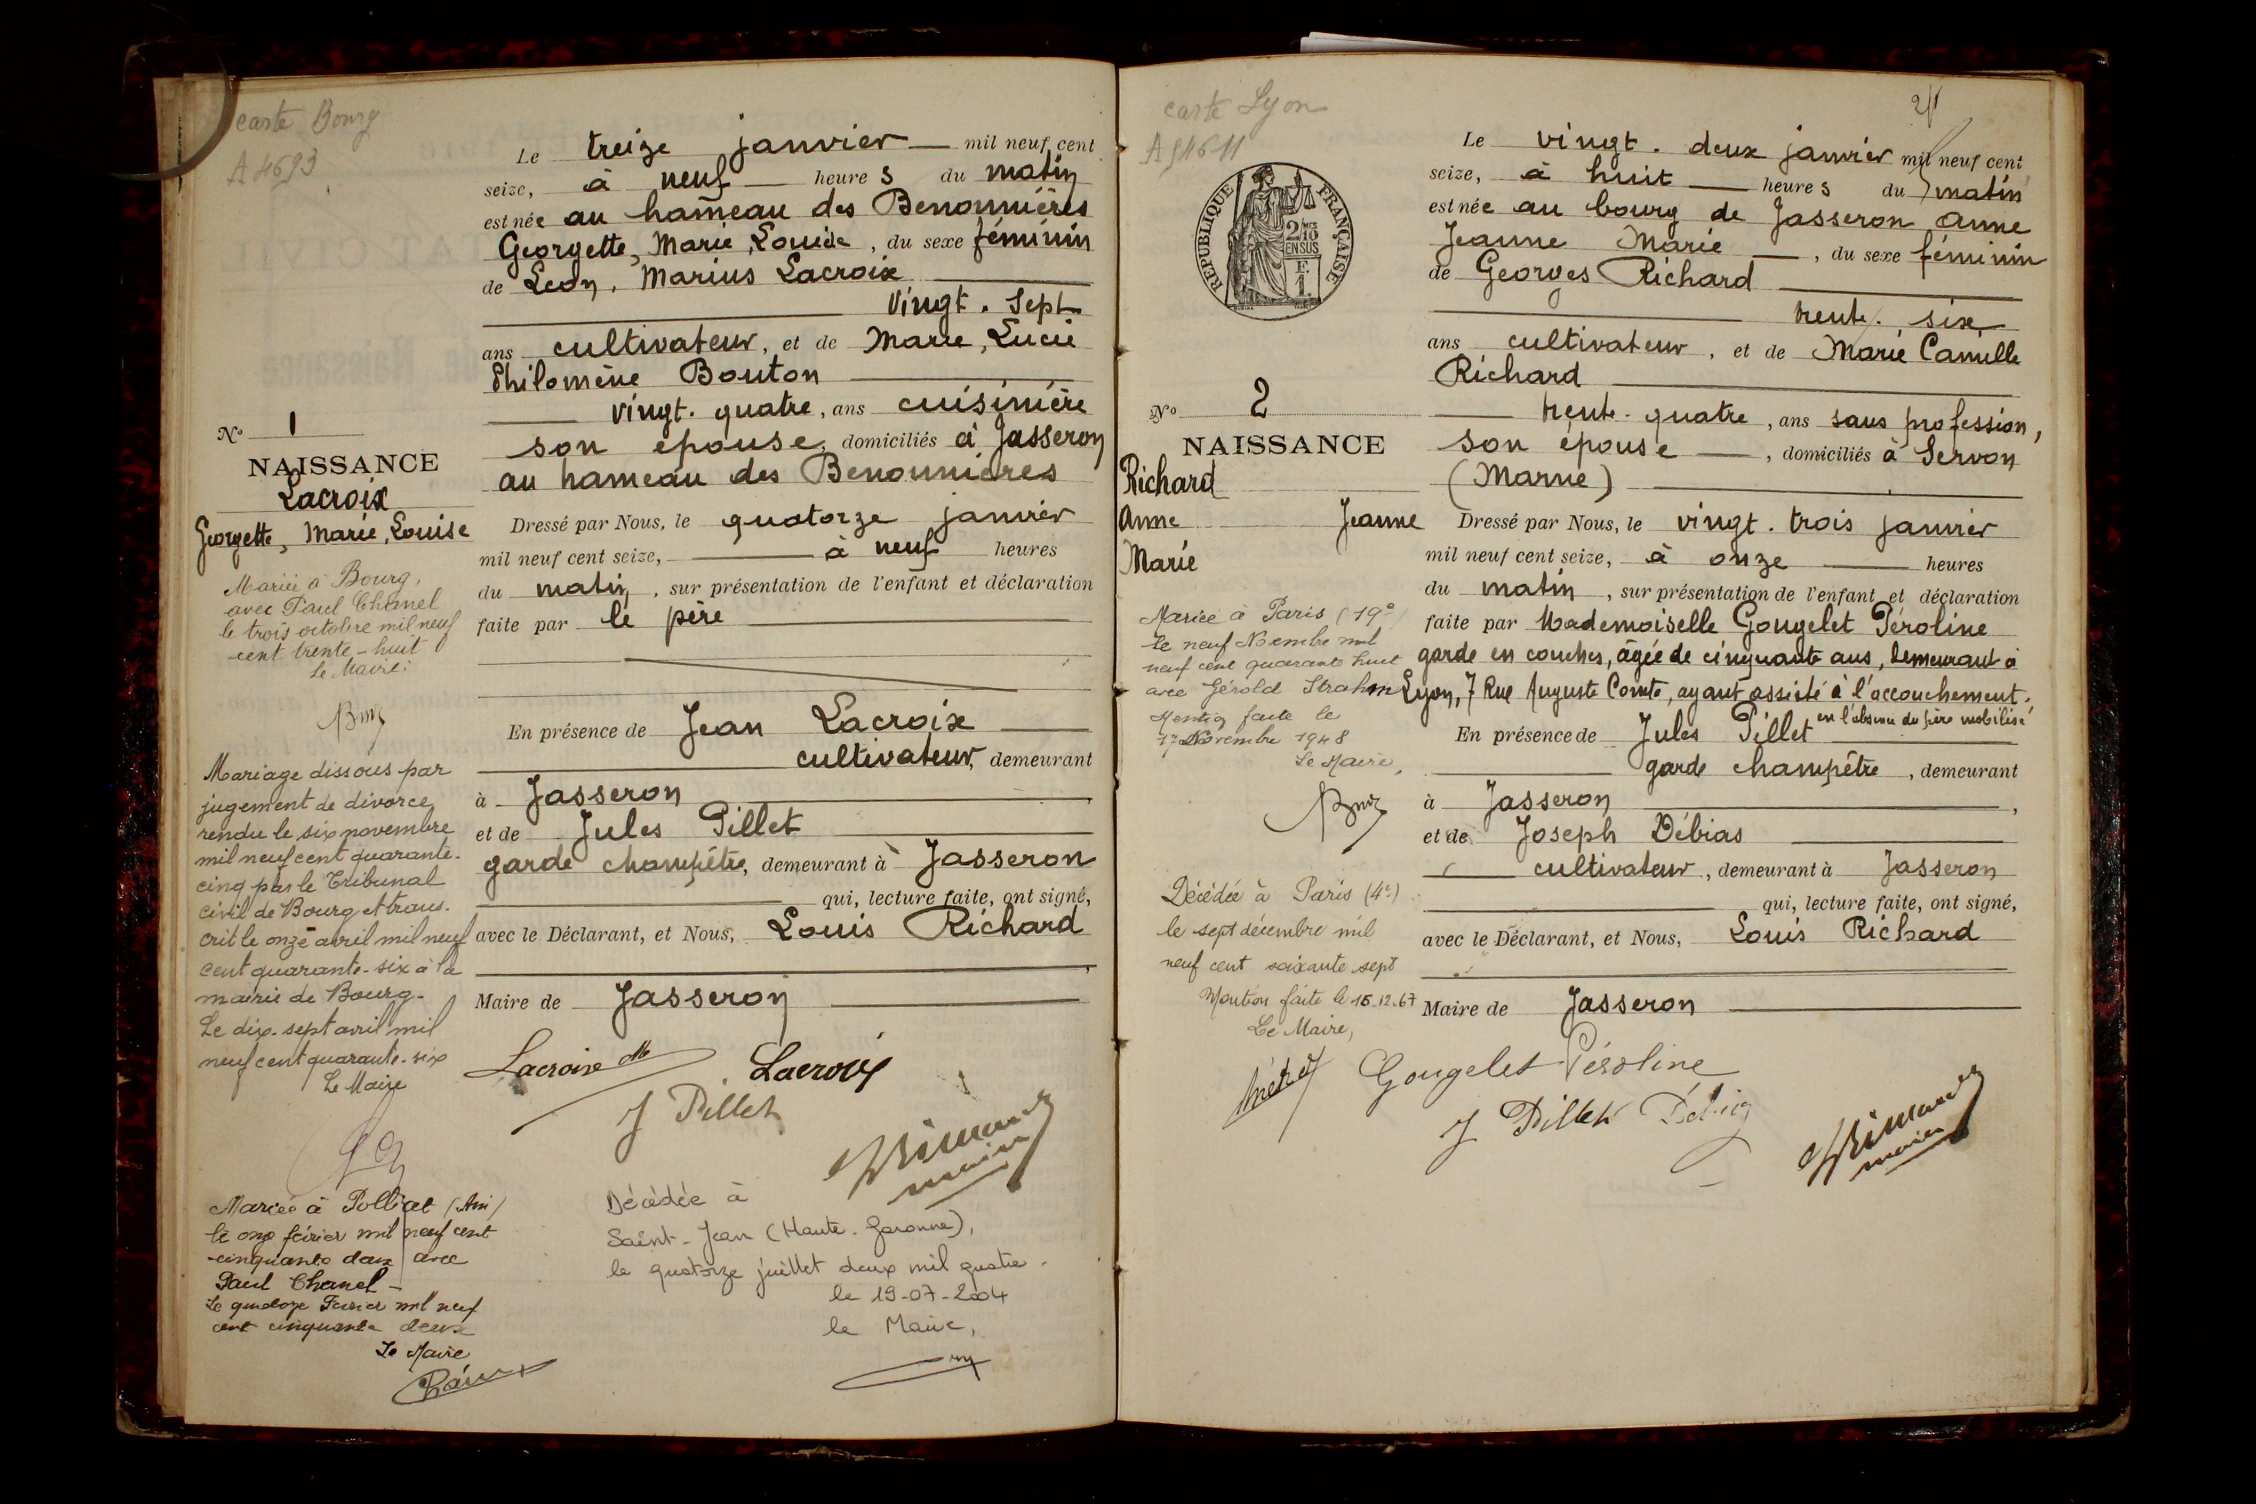 carte Bourg
A 4693
Le treize janvier mil neuf cent
seize, à neuf heures du matin
est née au hameau des Benonnières
Georgette, Marie, Louise, du sexe féminin
de Léon, Marius Lacroix
vingt. sept
ans cultivateur, et de Marie, Lucie
Philomène Bouton
vingt. quatre, ans cuisinière
son épouse, domiciliés à Jasseron
au hameau des Benonnières
Dressé par Nous, le quatorze janvier
mil neuf cent seize, à neuf heures
du matin, sur présentation de l'enfant et déclaration
faite par le père
En présence de Jean Lacroix
cultivateur, demeurant
à Jasseron
et de Jules Pillet
garde champêtre, demeurant à Jasseron
qui, lecture faite, ont signé,
avec le Déclarant, et Nous, Louis Richard
Maire de Jasseron
Lacroix Lacroix
J Pillet
maire
Décédée à
Saint-Jean (Haute-Garonne),
le quatorze juillet deux mil quatre.
le 19-07-2004
le Maire,
No 1
NAISSANCE
Lacroix
Georgette, Marie, Louise
Mariée à Bourg,
avec Paul Chanel
le trois octobre mil neuf
cent trente-huit
Le Maire:
Mariage dissous par
jugement de divorce
rendu le six novembre
mil neuf cent quarante-
cinq par le Tribunal
civil de Bourg et trans-
crit le onze avril mil neuf
cent quarante-six à la
mairie de Bourg-
Le dix-sept avril mil
neuf cent quarante-six
Le Maire
Mariée à Polliat (Ain)
le onze février mil neuf cent
cinquante deux avec
Paul Chanel -
Le Février mil neuf
cent cinquante deux
Le Maire
carte Lyon
A 54611
RÉPUBLIQUE FRANÇAISE
2/10
EN SUS
F.
1.
Le vingt. deux janvier mil neuf cent
seize, à huit heures du matin
est née au bourg de Jasseron Anne
Jeanne Marie, du sexe féminin
de Georges Richard
trente. six
ans cultivateur, et de Marie Camille
Richard
trente-quatre, ans sans profession,
son épouse, domiciliés à Servon
(Marne)
Dressé par Nous, le vingt. trois janvier
mil neuf cent seize, à onze heures
du matin, sur présentation de l'enfant et déclaration
faite par Mademoiselle Gougelet Péroline
garde en couches, âgée de cinquante ans, demeurant à
Lyon, 7 Rue Auguste Comte, ayant assisté à l'accouchement,
en l'absence du père mobilisé
En présence de Jules Pillet
garde champêtre, demeurant
à Jasseron,
et de Joseph Débias
cultivateur, demeurant à Jasseron
qui, lecture faite, ont signé,
avec le Déclarant, et Nous, Louis Richard
Maire de Jasseron
Gougelet Péroline
J Pillet
maire
No 2
NAISSANCE
Richard
Anne Jeanne
Marie
Mariée à Paris (19e)
le neuf Novembre mil
neuf cent quarante huit
avec Gérold Strahm
Mention faite le
17 Novembre 1948
Le Maire,
Décédée à Paris (4e)
le sept décembre mil
neuf cent soixante sept
Mention faite le 15.12.67
Le Maire,